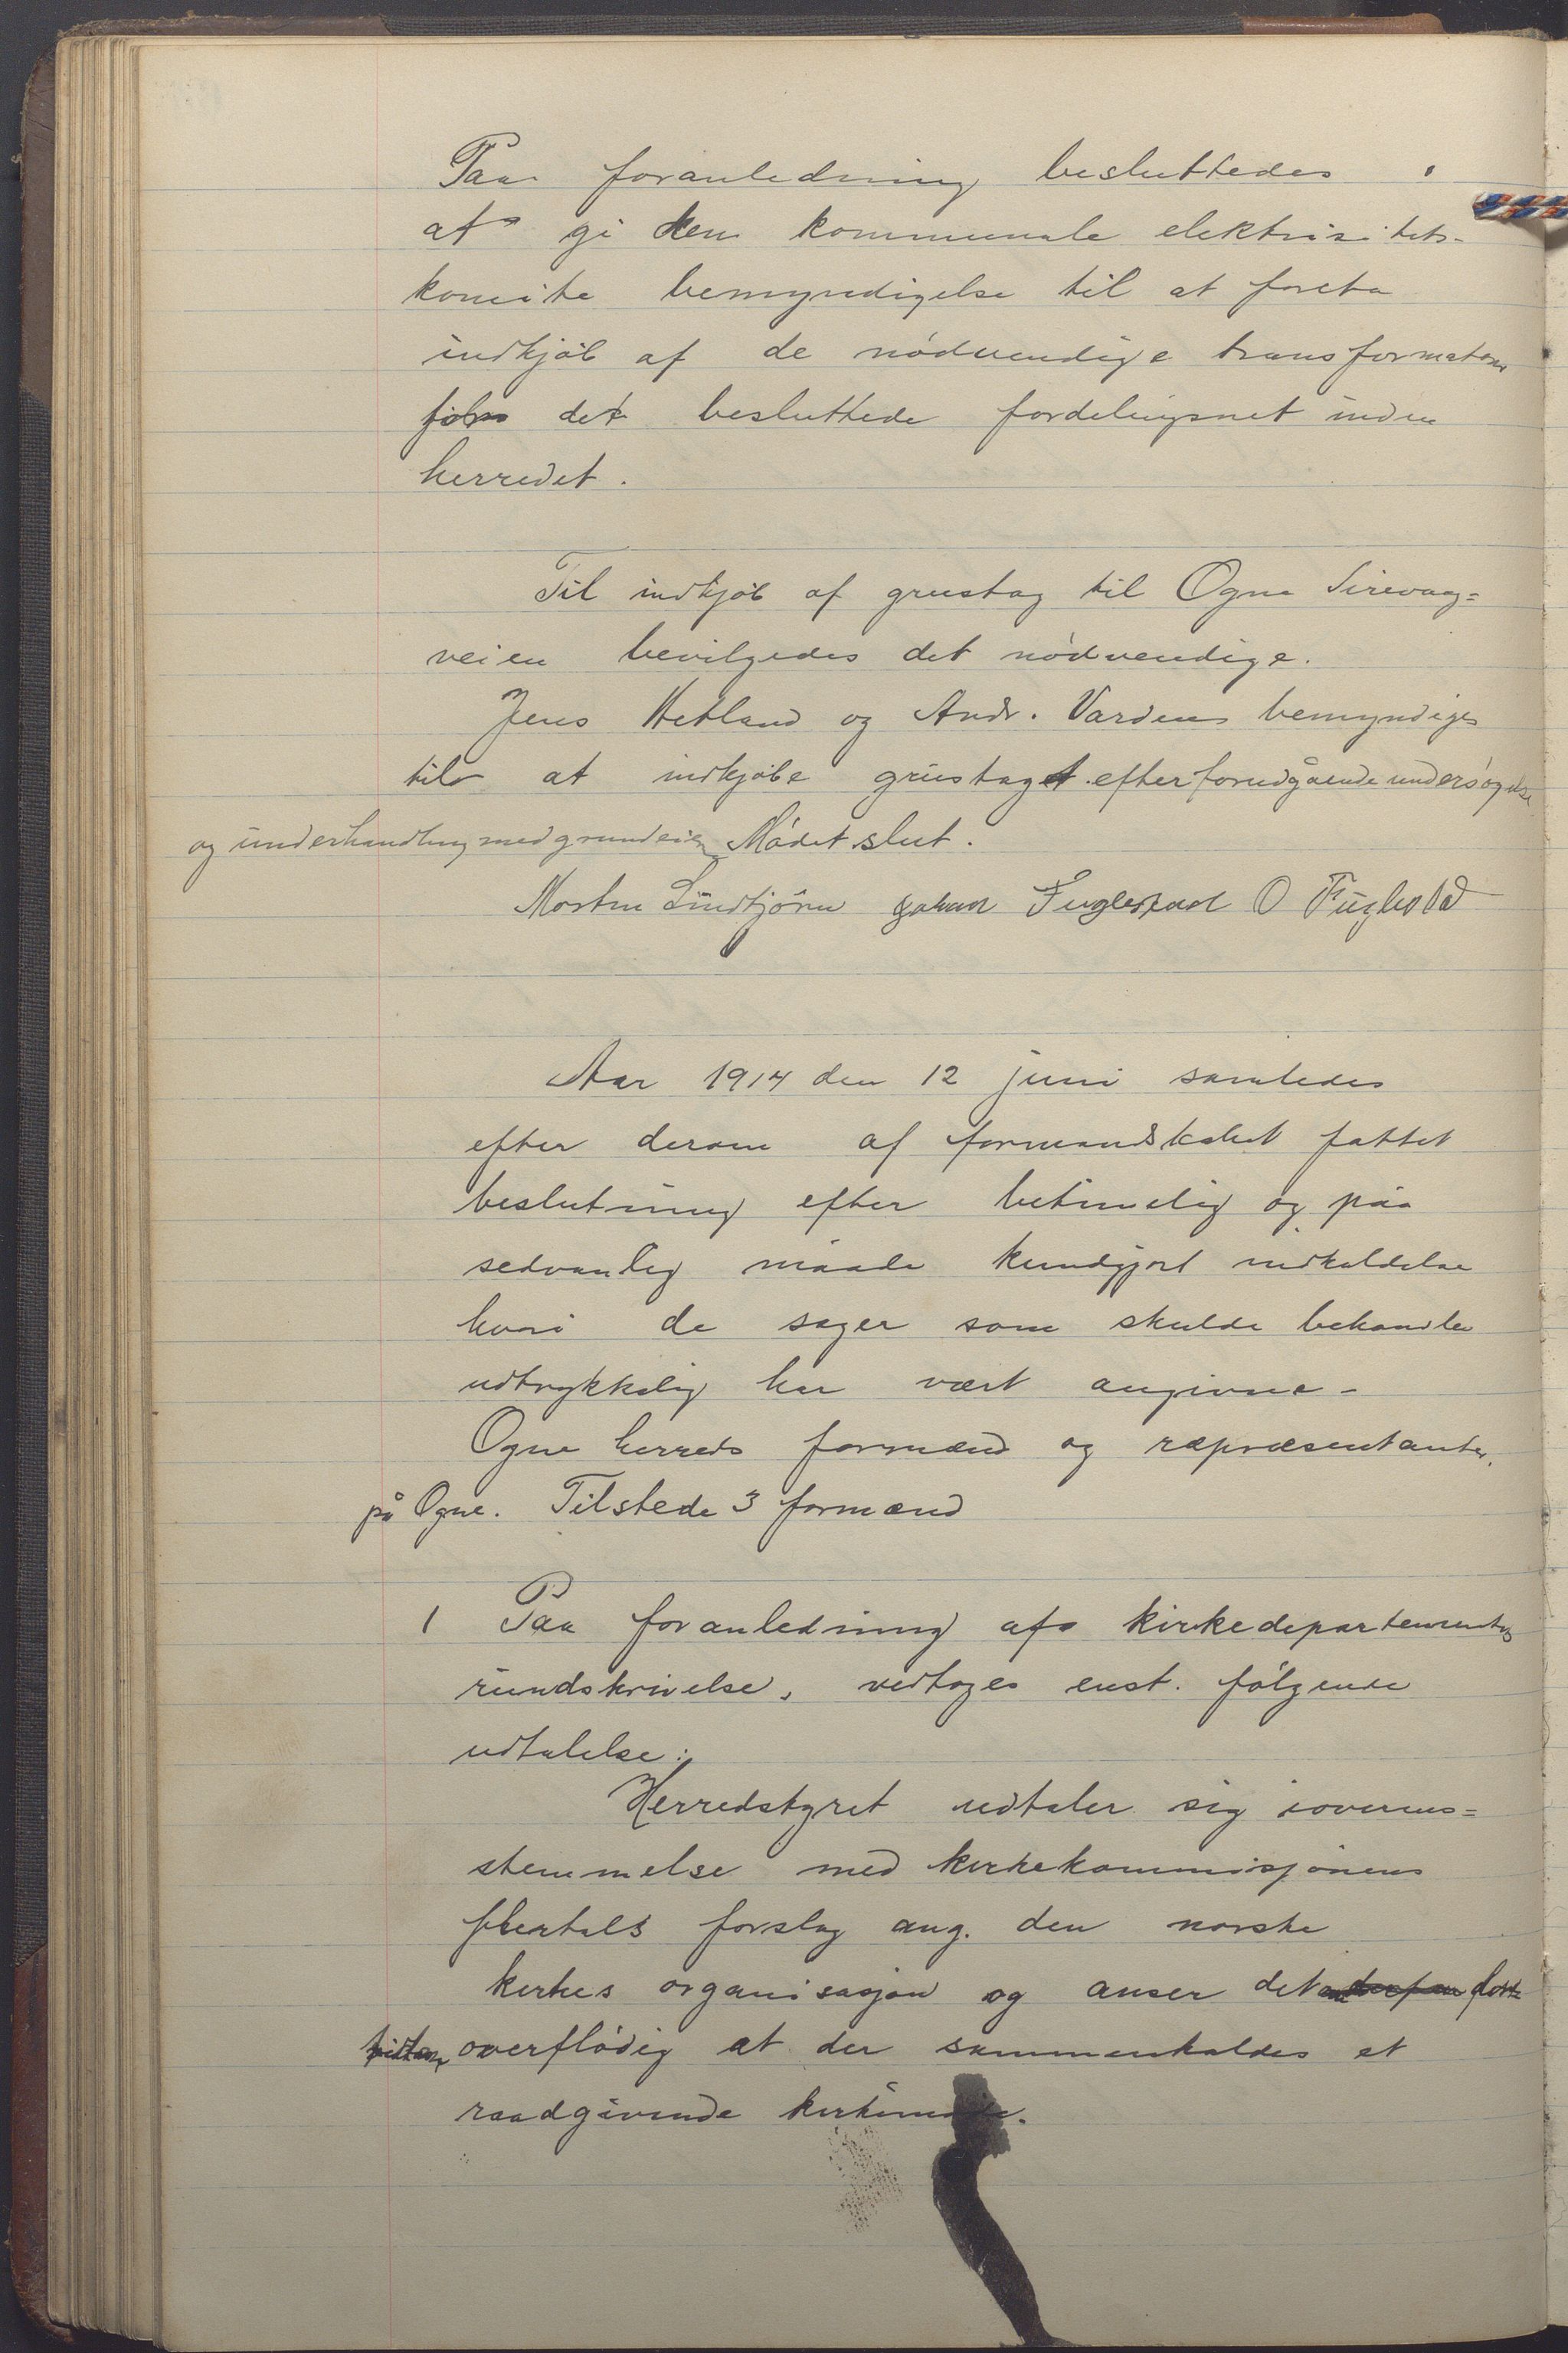 Paa foranledning besluttedes
at gi den kommunale elektrisitets-
komite bemyndigelse til at foreta
indkjøb af de nødvendige transformatorer
for det besluttede fordelingsnet inden
herredet.
Til indkjøb af grustag til Ogna Sirevaag=
veien bevilgedes det nødvendige.
Jens Hetland og Andr. Varden bemyndiges
til at indkjøbe grustaget efter forudgående undersøgelse
og underhandling med grundeier Mødet slut.
Morten Lindtjørn Johan Fuglestad O Fuglestad
Aar 1914 den 12 juni samledes
efter derom af formandskabet fattet
beslutning efter betimelig og paa
sedvanlig maade kundgjort indkaldelse
hvori de sager som skulde behandles
udtrykkelig har vært angivne-
Ogne herreds formænd og repræsentanter.
på Ogne. Tilstede 3 formænd
1 Paa foranledning af kirkedepartementets
rundskrivelse, vedtoges enst. følgende
udtalelse:
Herredstyret udtaler sig ioverens=
stemmelse med kirkekommisjonens
flertals forslag ang. den norske
kirkes organisasjon og anser det
overflødig at der sammenkaldes et
raadgivende kirkemøde.